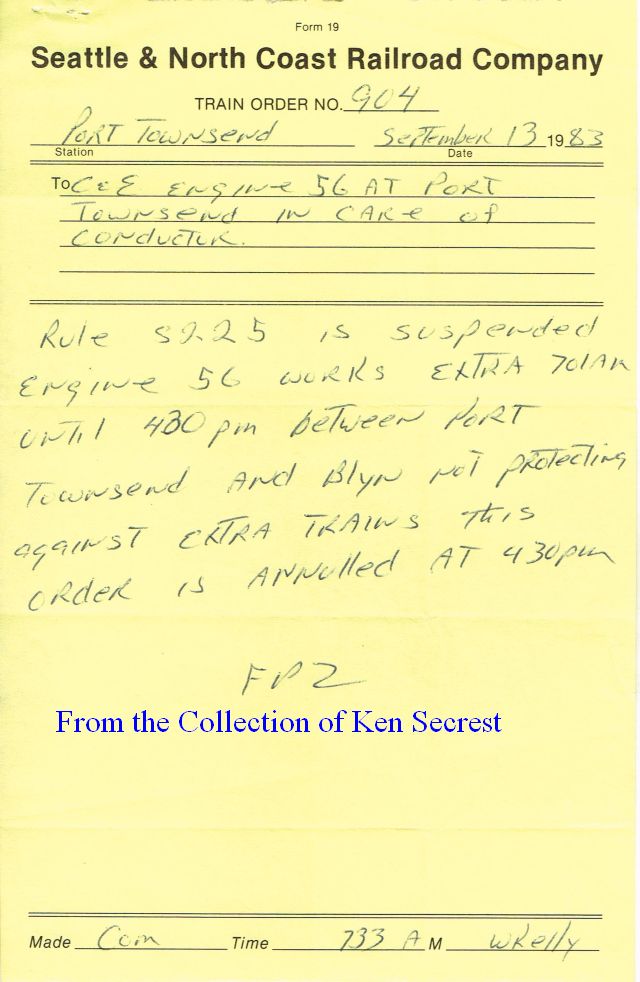 Form 19
Seattle & North Coast Railroad Company
TRAIN ORDER NO. 904
Port Townsend September 13 1983
Station Date
To C&E Engine 56 AT Port
Townsend in care of
conductor.
Rule S925 is suspended
Engine 56 works Extra 701AM
until 430pm between Port
Townsend And Blyn not protecting
against Extra Trains this
order is Annulled AT 430pm
FPZ
From the Collection of Ken Secrest
Made Com Time 733 A M WKelly